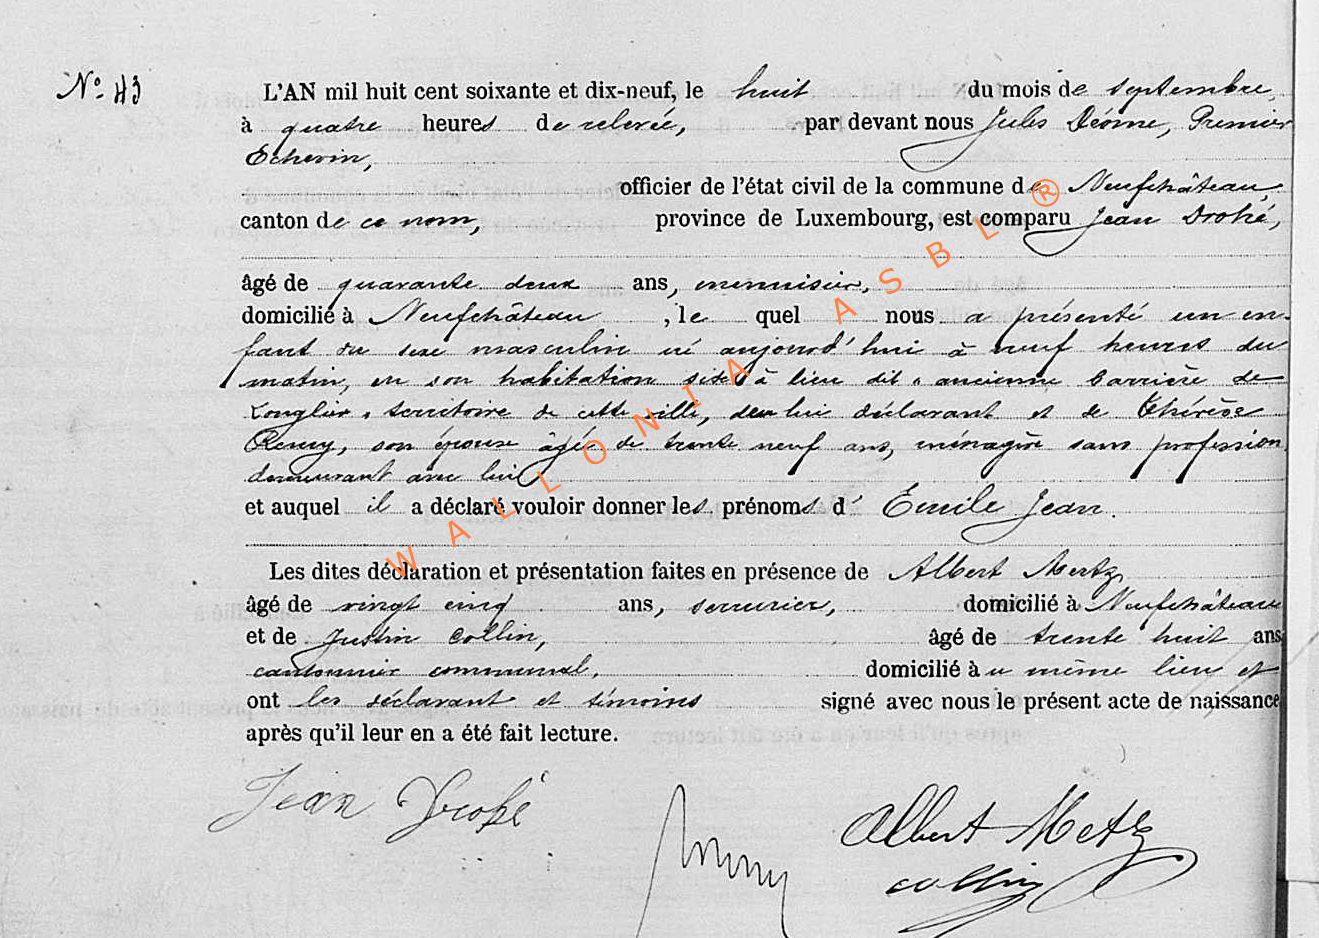 Nº 43
L'AN mil huit cent soixante et dix-neuf, le huit du mois de septembre,
à quatre heures de relevée, par devant nous Jules Déome, Premier
Echevin,
officier de l'état civil de la commune de Neufchâteau,
canton de ce nom, province de Luxembourg, est comparu Jean Drohé,
âgé de quarante deux ans, menuisier,
domicilié à Neufchâteau, le quel nous a présenté un en-
fant du sexe masculin né aujourd'hui à neuf heures du
matin, en son habitation sise à lieu dit « ancienne barrière de
Longlier » territoire de cette ville, de lui déclarant et de Thérèse
Remy, son épouse âgée de trente neuf ans, ménagère sans profession
demeurant avec lui
et auquel il a déclaré vouloir donner les prénoms d' Emile Jean.
Les dites déclaration et présentation faites en présence de Albert Metz,
âgé de vingt cinq ans, serrurier, domicilié à Neufchâteau
et de Justin Collin, âgé de trente huit ans
cantonnier communal, domicilié au même lieu et
ont les déclarant et témoins signé avec nous le présent acte de naissance
après qu'il leur en a été fait lecture.
Jean Drohé
Albert Metz
Collin
WALLONIA ASBL ®